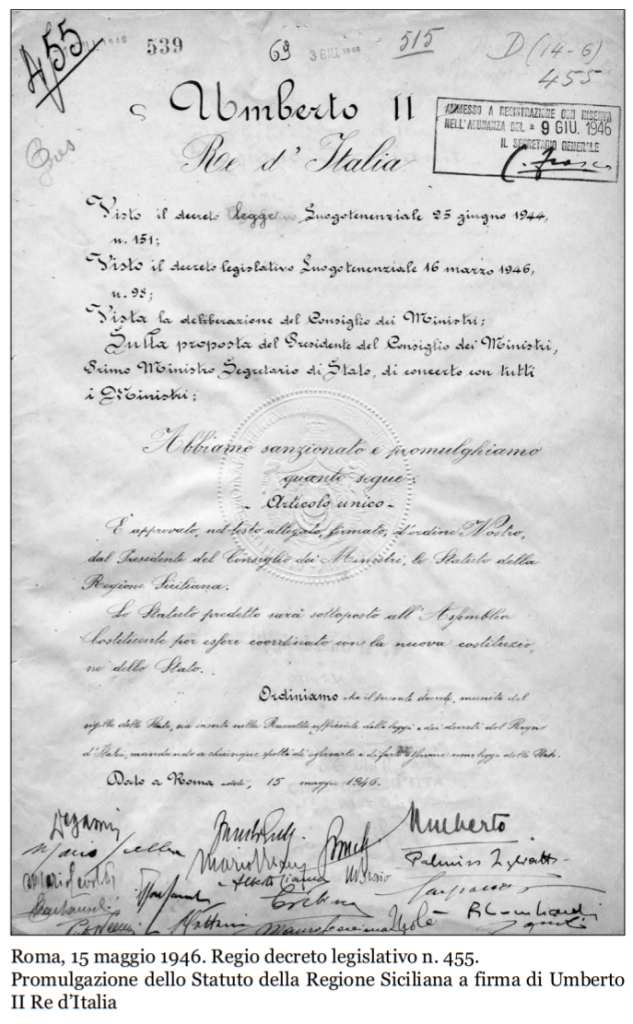 455
539
69
3 GIU. 1946
515
D (14-6)
455
Umberto II
Re d'Italia
AMMESSO A REGISTRAZIONE CON RISERVA
NELL'ADUNANZA DEL = 9 GIU. 1946
IL SEGRETARIO GENERALE
Visto il decreto legge Luogotenenziale 25 giugno 1944,
n. 151;
Visto il decreto legislativo Luogotenenziale 16 marzo 1946,
n. 98;
Vista la deliberazione del Consiglio dei Ministri;
Sulla proposta del Presidente del Consiglio dei Ministri,
Primo Ministro Segretario di Stato, di concerto con tutti
i Ministri;
Abbiamo sanzionato e promulghiamo
quanto segue:
- Articolo unico -
È approvato, nel testo allegato, firmato, d'ordine Nostro,
dal Presidente del Consiglio dei Ministri, lo Statuto della
Regione Siciliana.
Lo Statuto predetto sarà sottoposto all'Assemblea
Costituente per essere coordinato con la nuova costituzio
ne dello Stato.
Ordiniamo che il presente decreto, munito del
sigillo dello Stato, sia inserto nella Raccolta ufficiale delle leggi e dei decreti del Regno
d'Italia, mandando a chiunque spetti di osservarlo e di farlo osservare come legge dello Stato.
Dato a Roma addì, 15 maggio 1946.
Umberto
Roma, 15 maggio 1946. Regio decreto legislativo n. 455.
Promulgazione dello Statuto della Regione Siciliana a firma di Umberto
II Re d'Italia